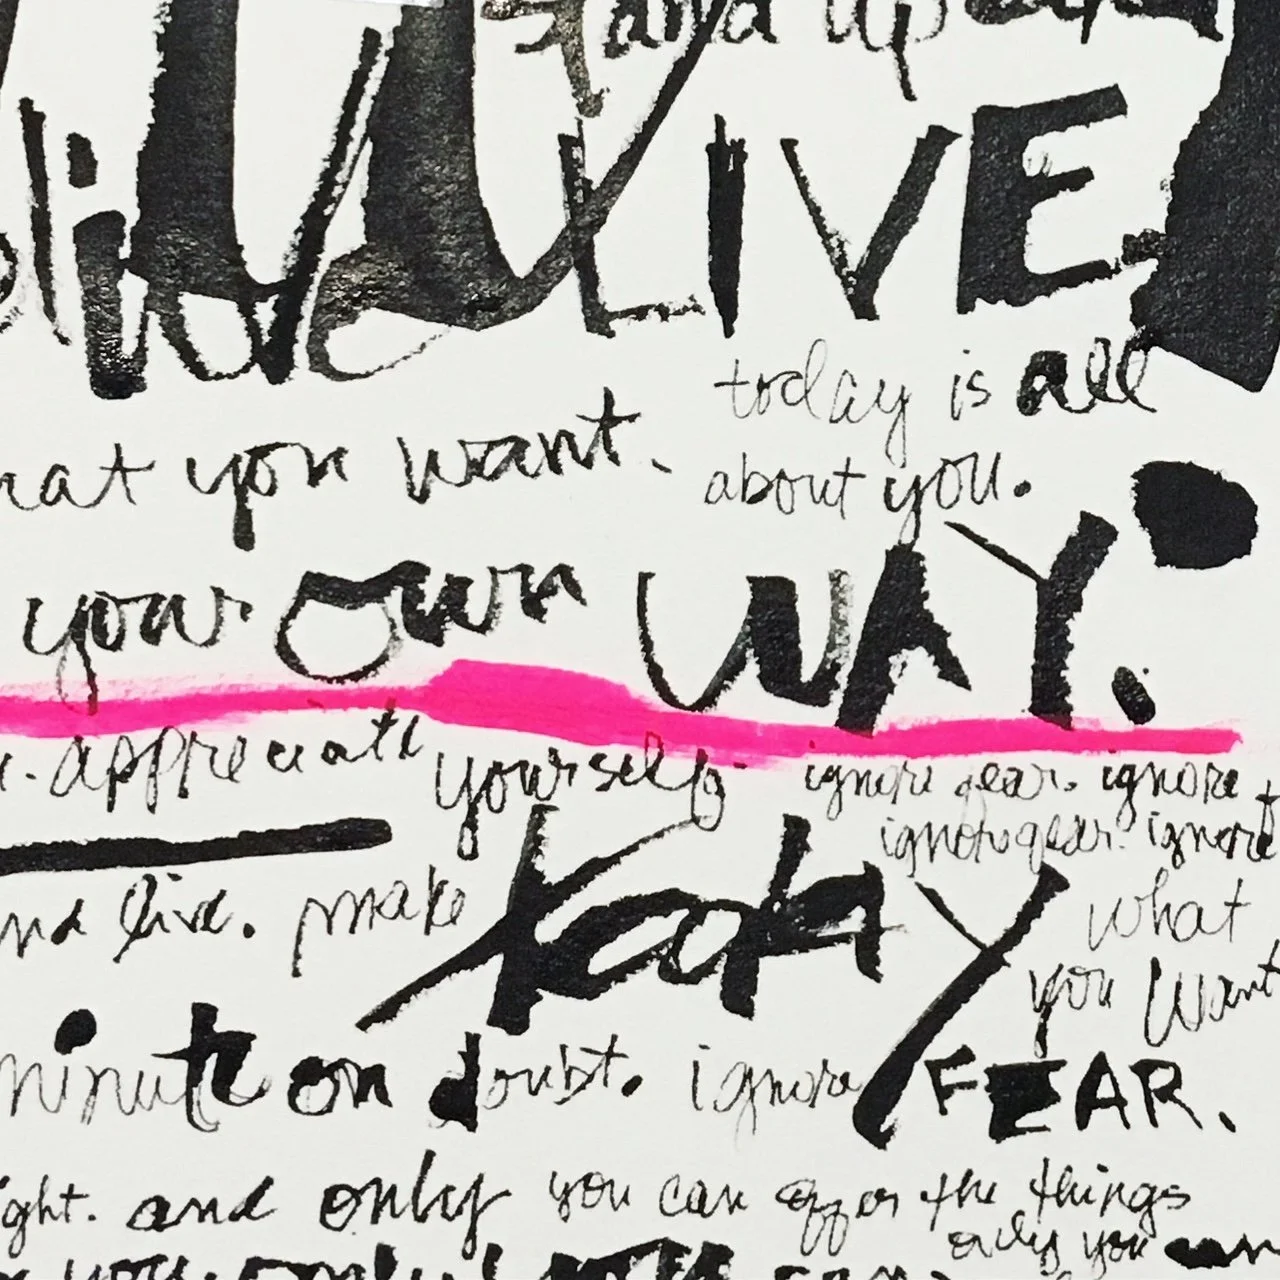 and
live LIVE
today is all
hat you want.
about you.
your own WAY.
appreciate yourself. ignore fear. ignore
ignore fear. ignore
nd live. make today what
you want
minute on doubt. ignore FEAR.
ight. and only you can offer the things
only you can
you. only you can.